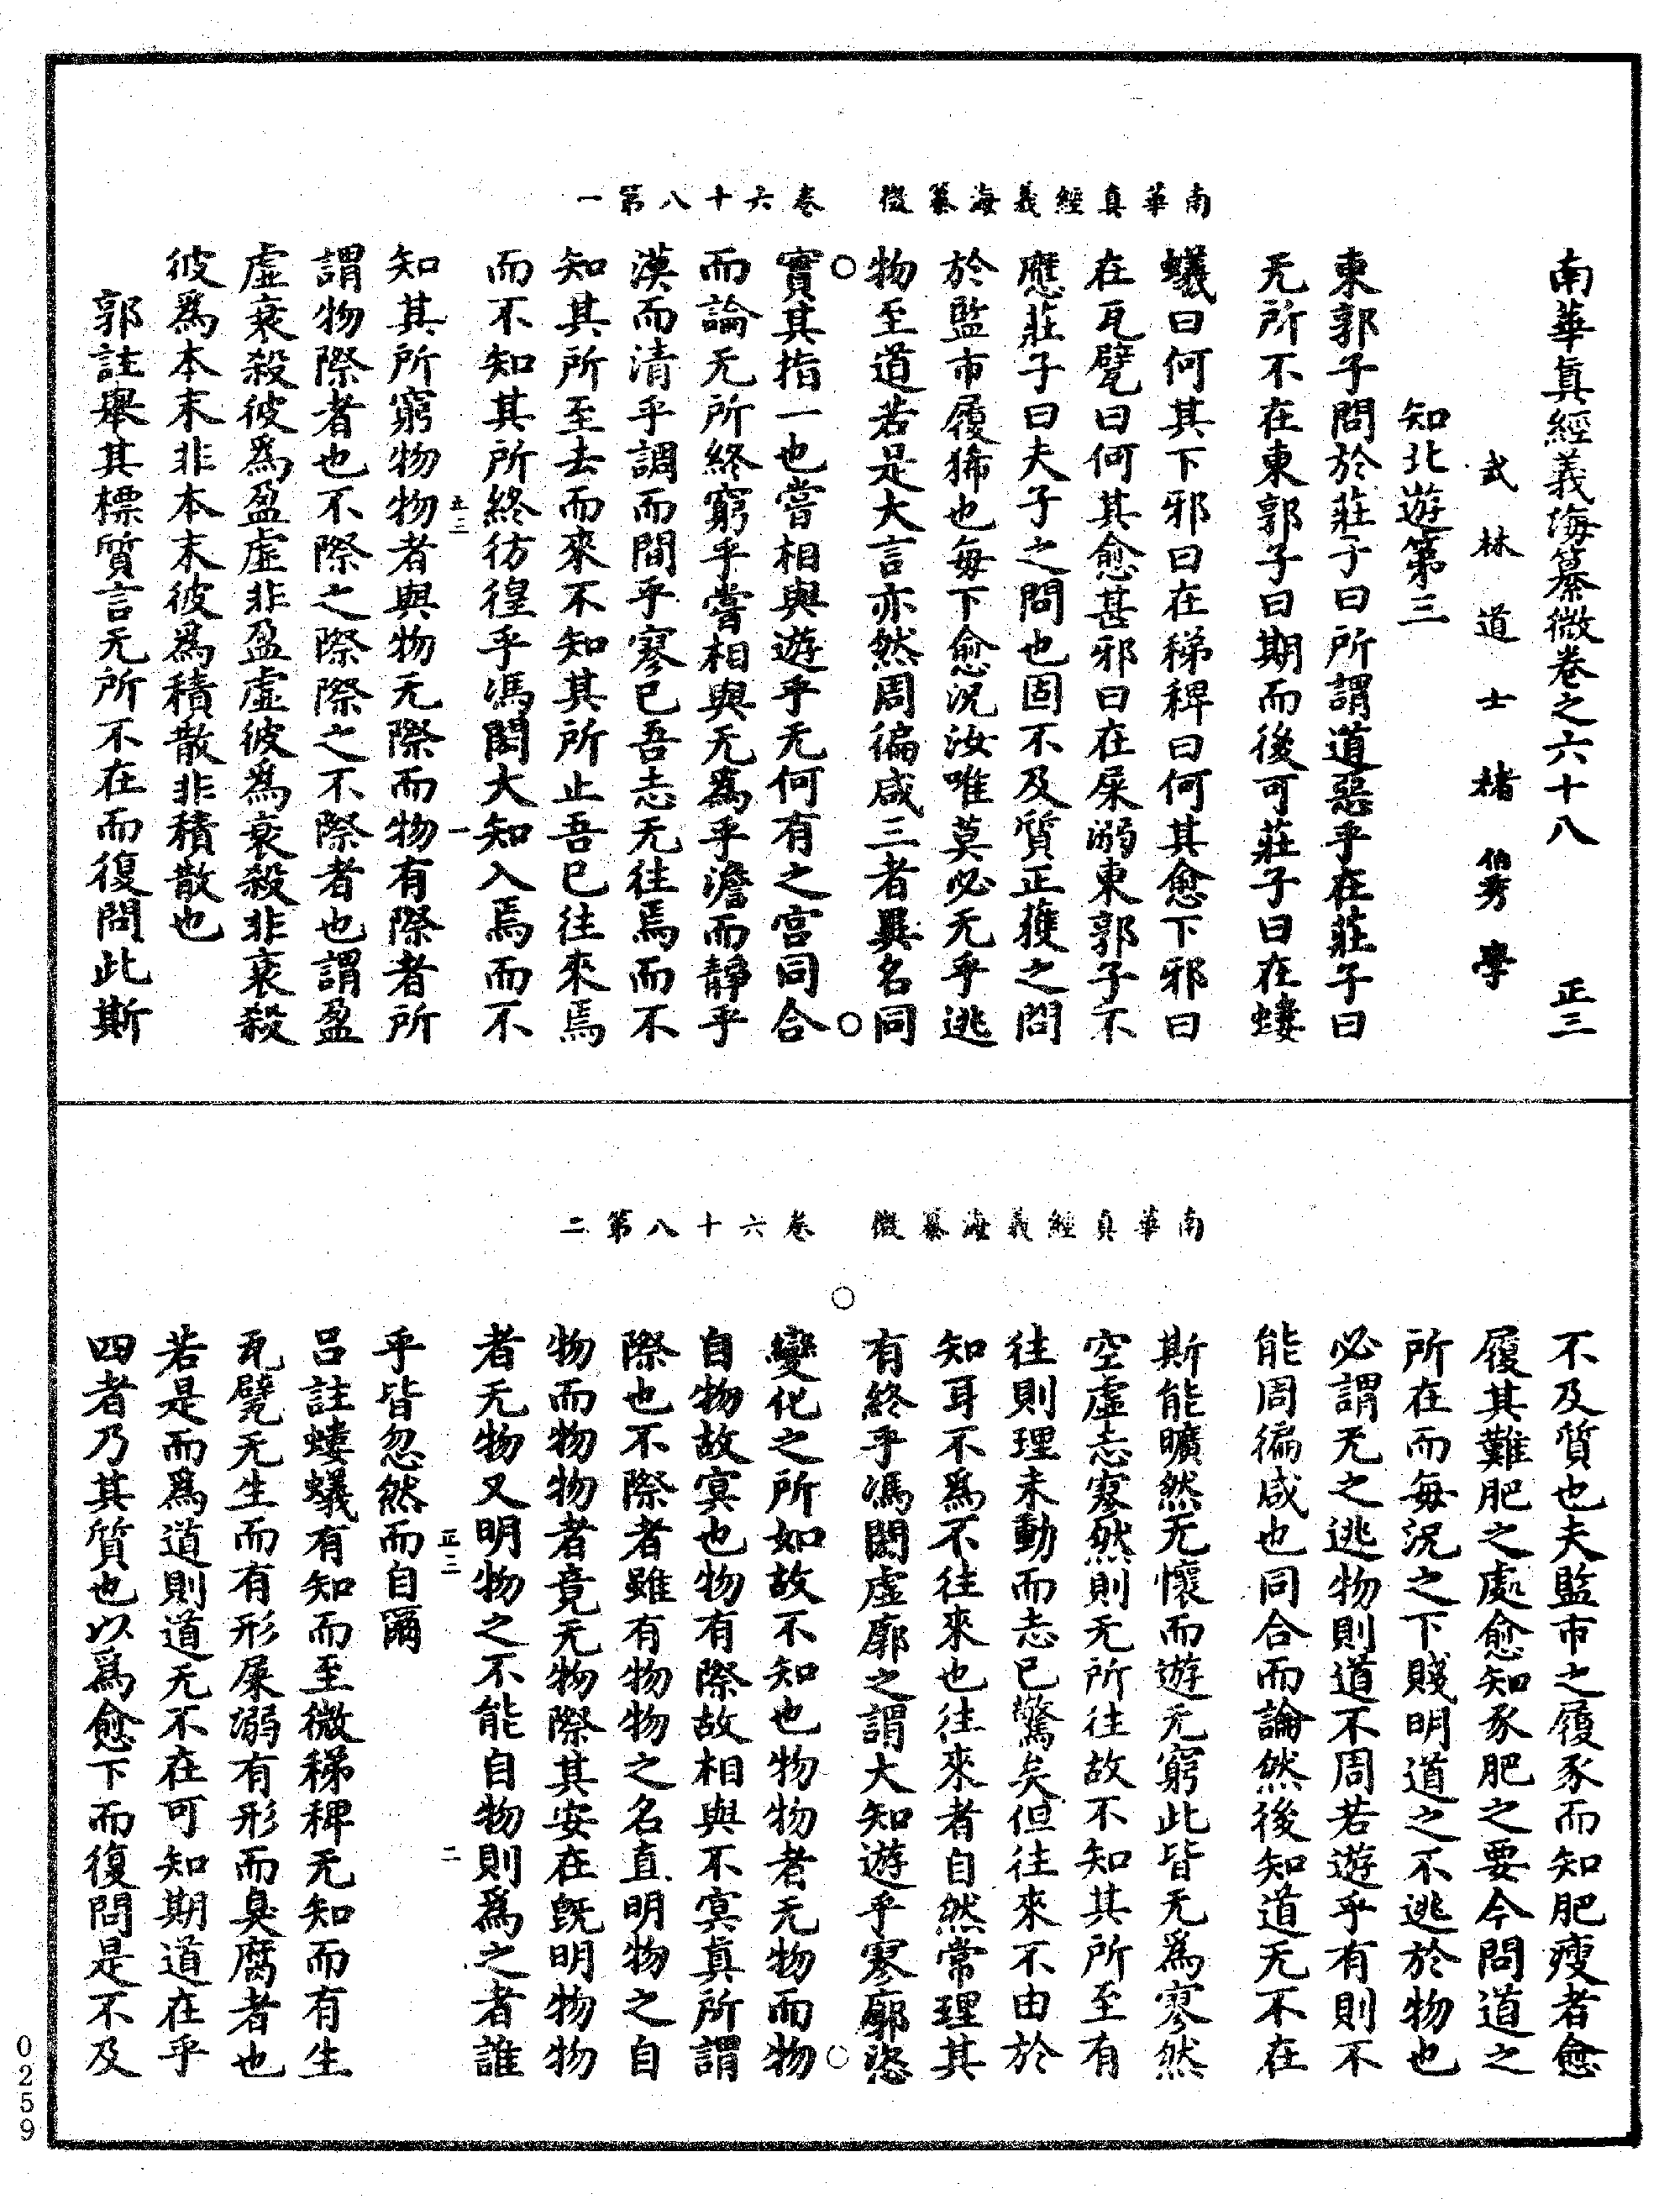 南華真經義海纂微卷六十八第一
南華真經義海纂微卷之六十八　正三
武林道士褚伯秀學
知北遊第三
東郭子問於莊子曰所謂道惡乎在莊子曰
无所不在東郭子曰期而後可莊子曰在螻
蟻曰何其下邪曰在稊稗曰何其愈下邪曰
在瓦甓曰何其愈甚邪曰在屎溺東郭子不
應莊子曰夫子之問也固不及質正獲之問
於監市履狶也每下愈況汝唯莫必无乎逃
物至道若是大言亦然周徧咸三者異名同
實其指一也嘗相與遊乎无何有之宮同合
而論无所終窮乎嘗相與无為乎澹而靜乎
漠而清乎調而間乎寥已吾志无往焉而不
知其所至去而來不知其所止吾已往來焉
而不知其所終彷徨乎馮閎大知入焉而不
正三　一
知其所窮物物者與物无際而物有際者所
謂物際者也不際之際際之不際者也謂盈
虛衰殺彼為盈虛非盈虛彼為衰殺非衰殺
彼為本末非本末彼為積散非積散也
郭註舉其標質言无所不在而復問此斯
南華真經義海纂微卷六十八第二
不及質也夫監市之履豕而知肥瘦者愈
履其難肥之處愈知豕肥之要今問道之
所在而每況之下賤明道之不逃於物也
必謂无之逃物則道不周若遊乎有則不
能周徧咸也同合而論然後知道无不在
斯能曠然无懷而遊无窮此皆无為寥然
空虛志寥然則无所往故不知其所至有
往則理未動而志已驚矣但往來不由於
知耳不為不往來也往來者自然常理其
有終乎馮閎虛廓之謂大知遊乎寥廓恣
變化之所如故不知也物物者无物而物
自物故冥也物有際故相與不冥真所謂
際也不際者雖有物物之名直明物之自
物而物物者竟无物際其安在既明物物
者无物又明物之不能自物則為之者誰
正三　二
乎皆忽然而自爾
呂註螻蟻有知而至微稊稗无知而有生
瓦甓无生而有形屎溺有形而臭腐者也
若是而為道則道无不在可知期道在乎
四者乃其質也以為愈下而復問是不及
0259